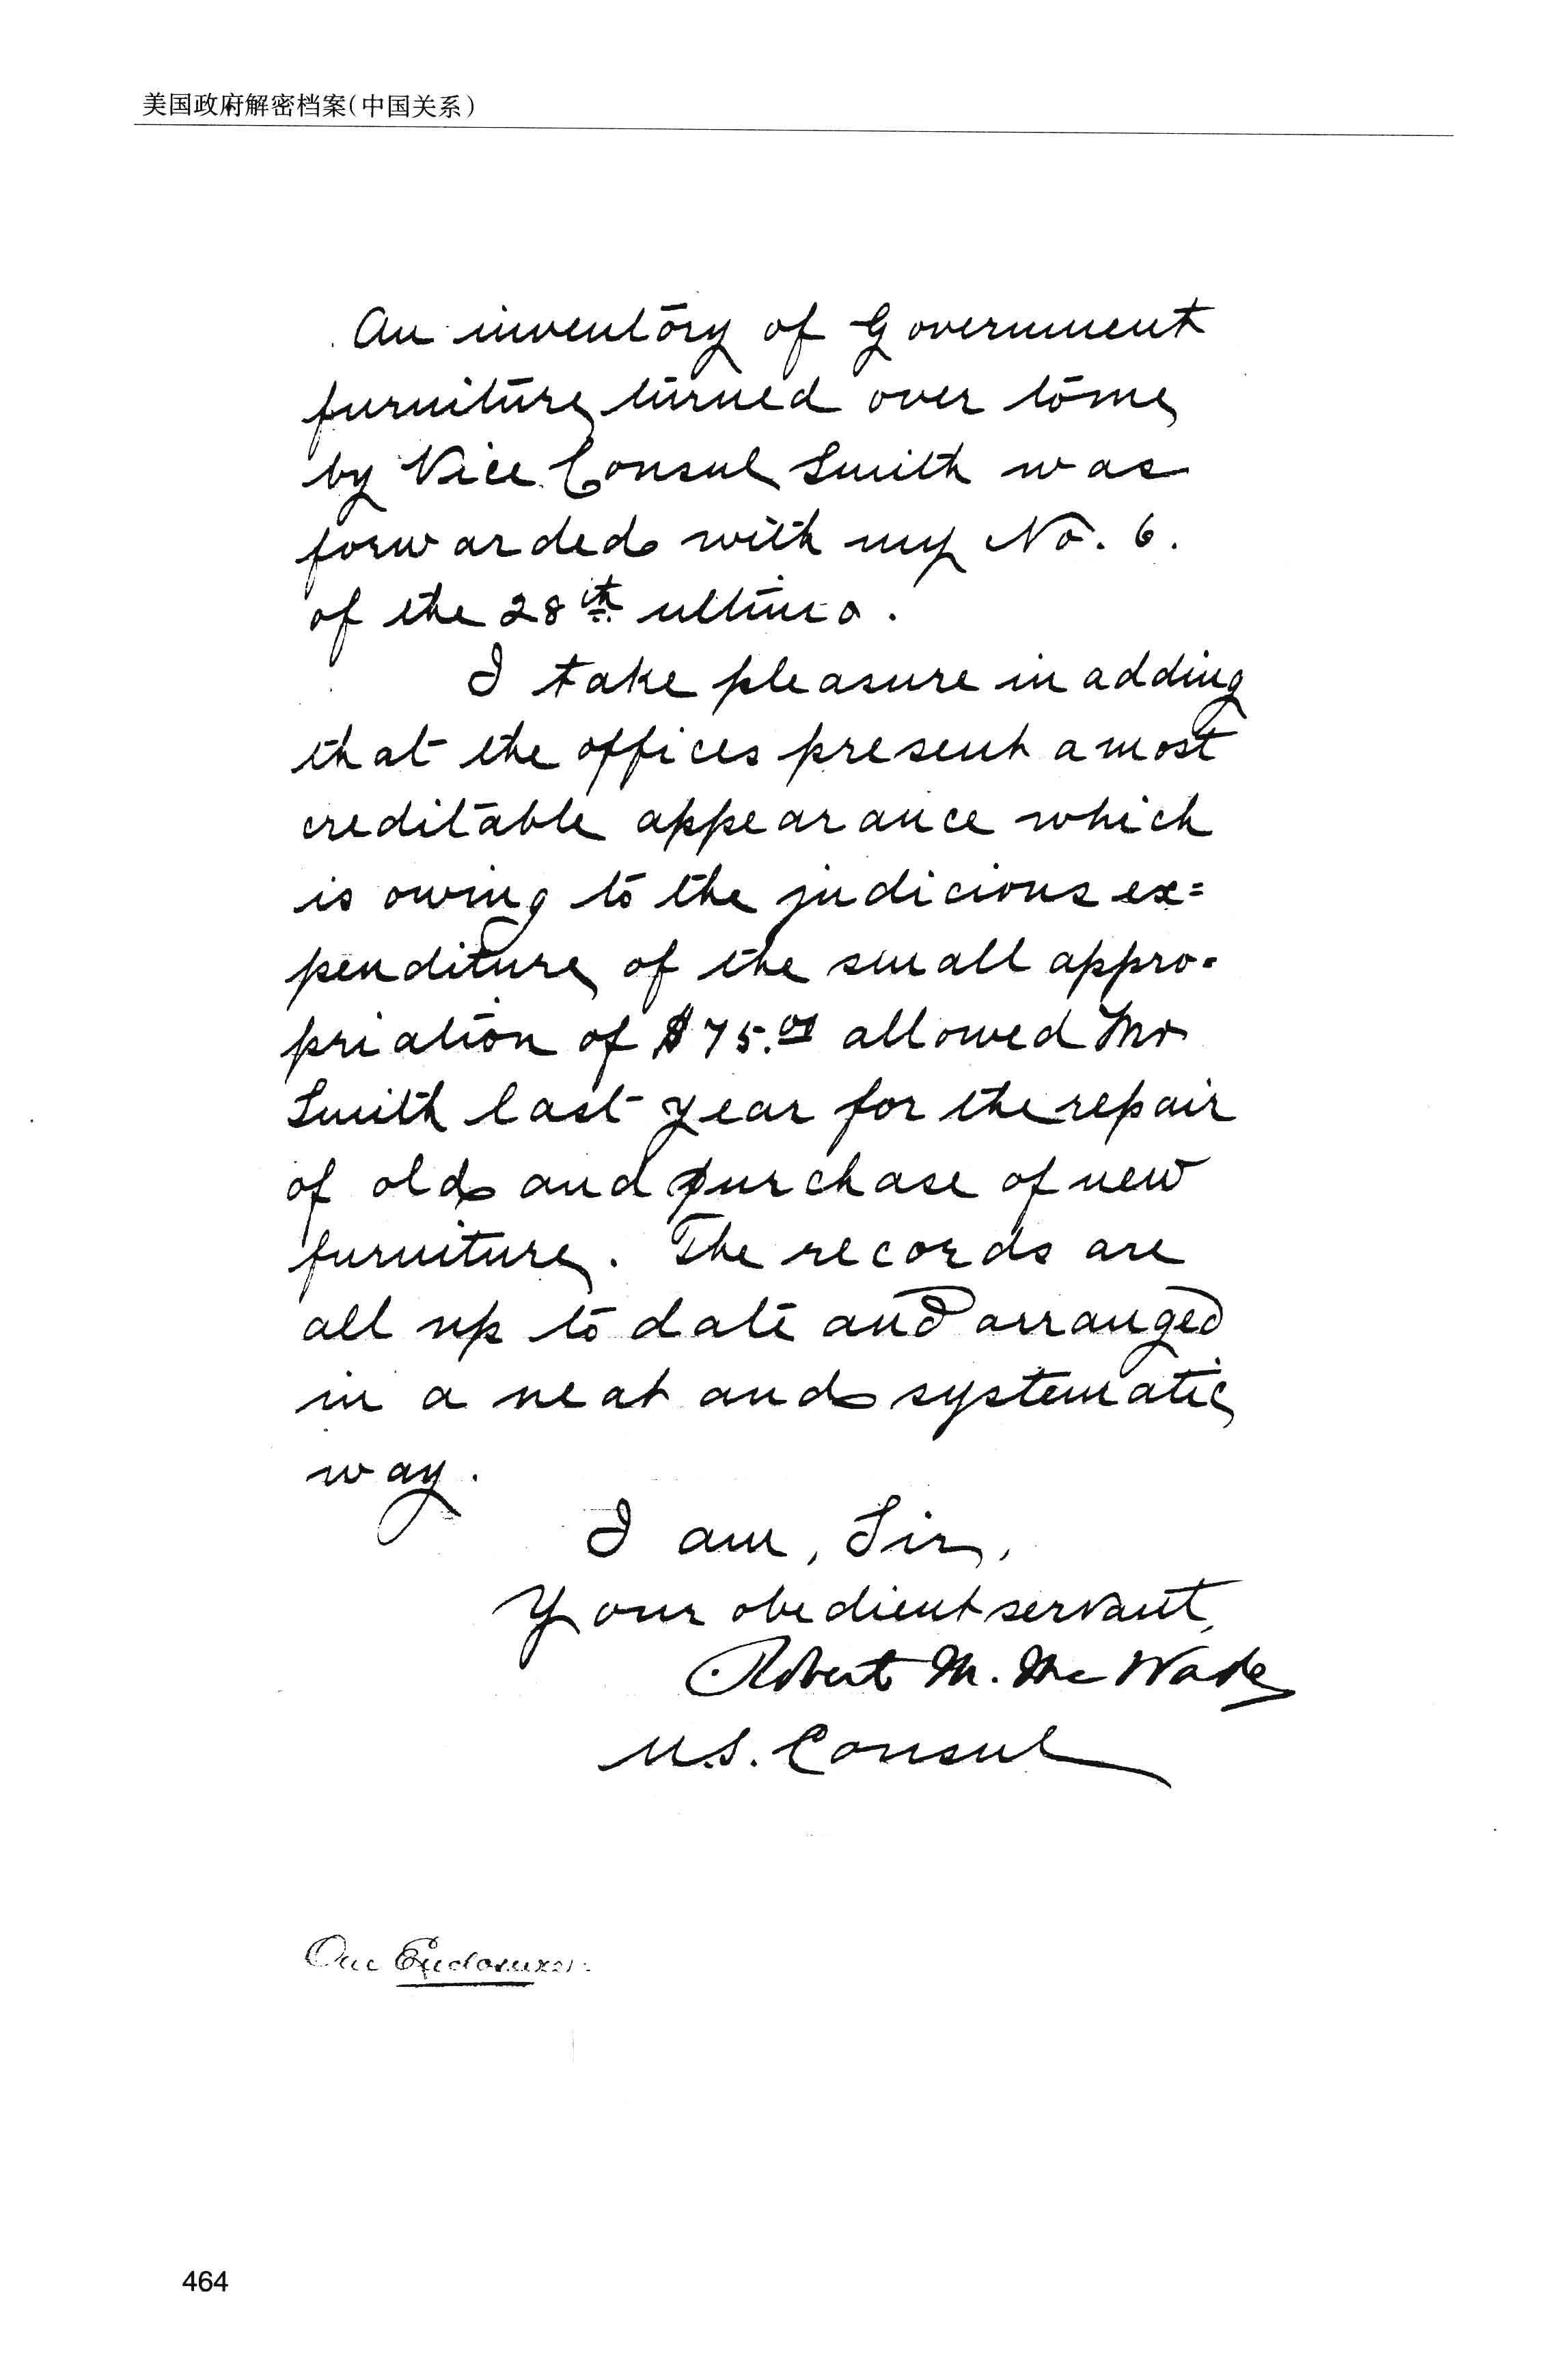 美国政府解密档案(中国关系)
An inventory of Government
furniture turned over to me
by Vice Consul Smith was
forwarded with my No. 6.
of the 28th ultimo.
I take pleasure in adding
that the offices present a most
creditable appearance which
is owing to the judicious ex=
penditure of the small appro-
priation of $75.00 allowed Mr
Smith last year for the repair
of old and purchase of new
furniture. The records are
all up to date and arranged
in a neat and systematic
way.
I am, Sir,
Your obedient servant,
Robert M. McWade
U.S. Consul
One Enclosure.
464